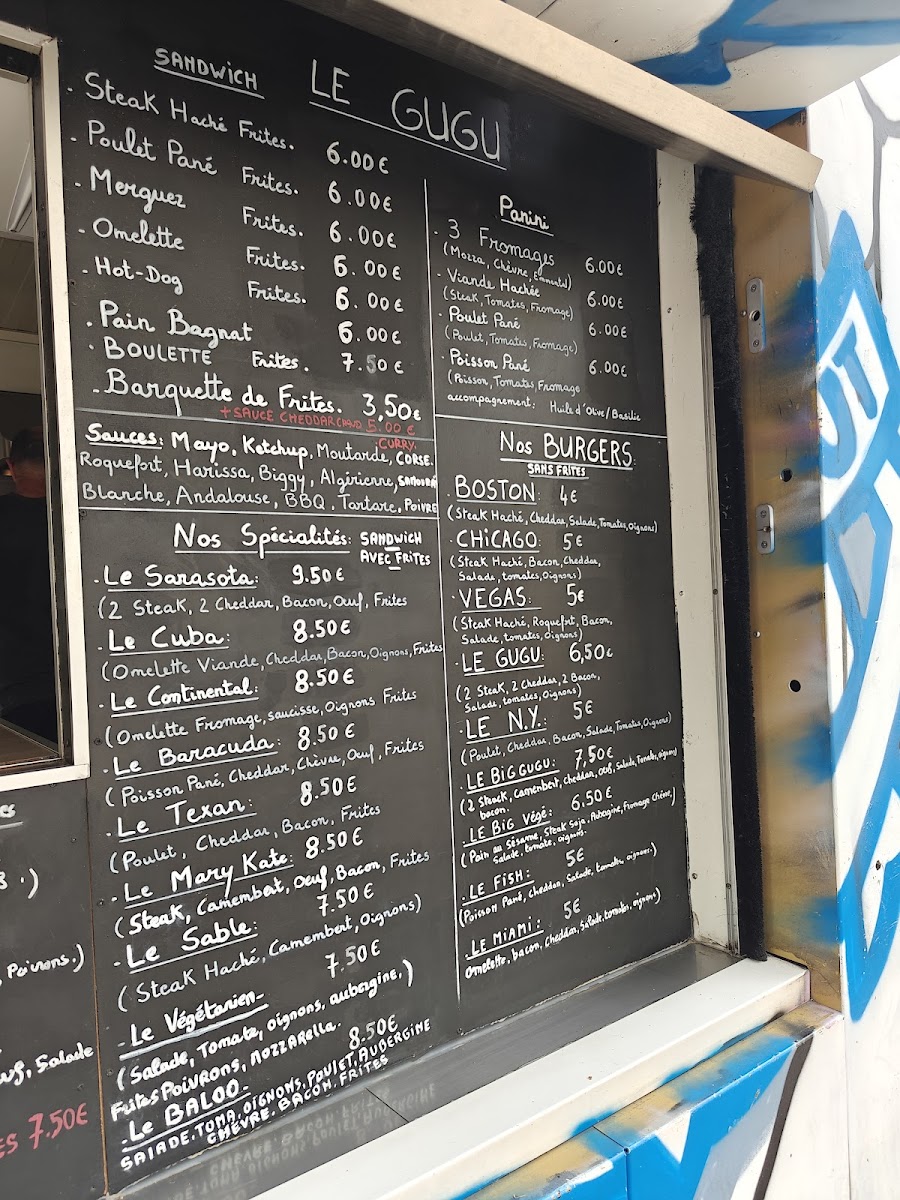 LE GUGU
SANDWICH
. Steak Haché Frites. 6.00€
. Poulet Pané Frites. 6.00€
- Merguez Frites. 6.00€
- Omelette Frites. 6.00€
. Hot-Dog Frites. 6.00€
. Pain Bagnat 6.00€
. BOULETTE Frites. 7.50€
- Barquette de Frites. 3,50€
+ SAUCE CHEDDAR CHAUD 5.00€
Sauces: Mayo, Ketchup, Moutarde, CURRY. CORSE.
Roquefort, Harissa, Biggy, Algérienne, SAMOURAÏ
Blanche, Andalouse, BBQ, Tartare, POIVRE
Nos Spécialités: SANDWICH
AVEC FRITES
. Le Sarasota: 9.50€
(2 Steak, 2 Cheddar, Bacon, Oeuf, Frites
. Le Cuba: 8.50€
(Omelette Viande, Cheddar, Bacon, Oignons, Frites
. Le Continental: 8.50€
(Omelette Fromage, saucisse, Oignons Frites
- Le Baracuda: 8.50€
(Poisson Pané, Cheddar, Chèvre, Oeuf, Frites
- Le Texan: 8.50€
(Poulet, Cheddar, Bacon, Frites
- Le Mary Kate: 8.50€
(Steak, Camembert, Oeuf, Bacon, Frites
- Le Sable: 7.50€
(Steak Haché, Camembert, Oignons)
- Le Végétarien- 7.50€
(Salade, Tomate, oignons, aubergine,)
Frites Poivrons, mozzarella.
- Le BALOO- 8.50€
SALADE, TOMA, OIGNONS, POULET, AUBERGINE
CHÈVRE, BACON, FRITES
Panini
. 3 Fromages 6.00€
(Mozza, Chèvre, Emmental)
- Viande Hachée 6.00€
(Steak, Tomates, Fromage)
- Poulet Pané 6.00€
(Poulet, Tomates, Fromage)
- Poisson Pané 6.00€
(Poisson, Tomates, Fromage
accompagnement: Huile d'Olive/Basilic
Nos BURGERS
SANS FRITES
. BOSTON: 4€
(Steak Haché, Cheddar, Salade, Tomates, Oignons)
- CHICAGO: 5€
(Steak Haché, Bacon, Cheddar,
Salade, tomates, oignons)
- VEGAS: 5€
(Steak Haché, Roquefort, Bacon,
Salade, tomates, oignons)
. LE GUGU: 6,50€
(2 Steak, 2 Cheddar, 2 Bacon,
Salade, tomates, Oignons)
- LE N.Y.: 5€
(Poulet, Cheddar, Bacon, Salade, Tomates, Oignons)
. LE BIG GUGU: 7,50€
(2 Steack, Camembert, cheddar, oeuf, Salade, Tomates, oignons)
bacon.
. LE BIG VÉGÉ: 6.50€
(Pain au Sésame, Steak Soja, Aubergine, Fromage Chèvre,)
Salade, tomate, oignons.
. LE FISH: 5€
(Poisson Pané, cheddar, Salade, tomate, oignons.)
. LE MIAMI: 5€
Omelette, bacon, cheddar, Salade, tomates, oignons)
Poivrons.)
Salade
7.50€